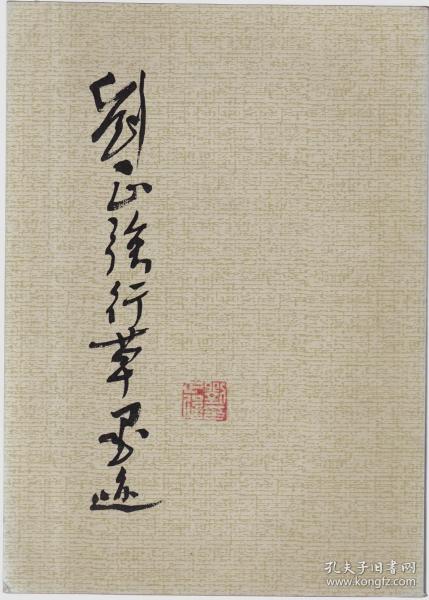 劉正強行草墨迹
孔夫子旧书网
www.kongfz.com